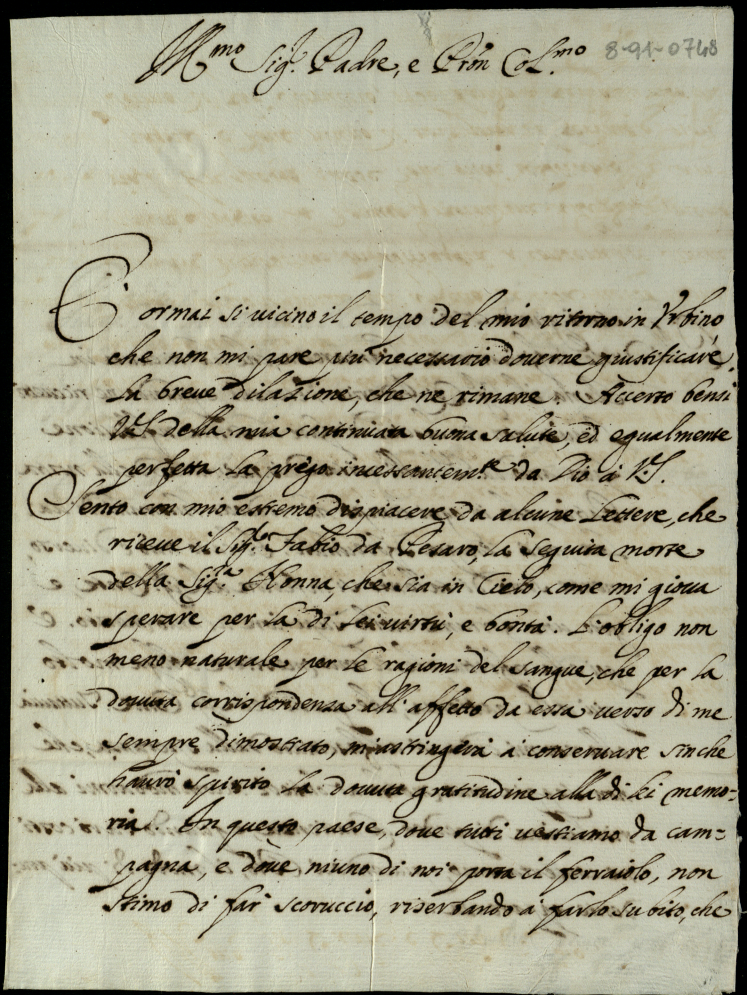 Ill.mo Sig.r Padre, e Pron Col.mo
8-91-0748
E' ormai si uicino il tempo del mio ritorno in Vrbino
che non mi pare piu necessario douerne giustificare
la breue dilazione, che ne rimane. Accerto bensi
V.S. della mia continuata buona salute, ed egualmente
perfetta la prego incessantem.te da Dio à V.S.
Sento con mio estremo dispiacere da alcune lettere, che
riceue il Sig.r Fabio da Pesaro, la seguita morte
della Sig.ra Nonna, che sia in Cielo, come mi gioua
sperare per la di lei uirtù, e bontà. L'obligo non
meno naturale per le ragioni del sangue, che per la
douuta corrispondenza all'affetto da essa uerso di me
sempre dimostrato, m'astringerà à conseruare sinche
haurò spirito la douuta gratitudine alla di lei memo=
ria. In questo paese, doue tutti uestiamo da cam=
pagna, e doue niuno di noi porta il ferraiolo, non
stimo di far scoruccio, riserbando à farlo subito, che